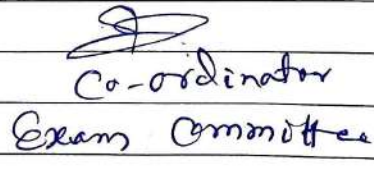 Co-ordinator
Exam Committee